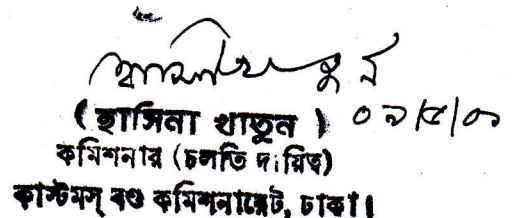 (হাসিনা খাতুন) ০৯/৫/০১
কমিশনার (চলতি দায়িত্ব)
কাস্টমস্ বণ্ড কমিশনারেট, ঢাকা।